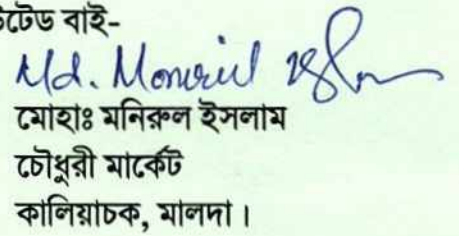 টেড বাই-
Md. Monirul Islam
মোহাঃ মনিরুল ইসলাম
চৌধুরী মার্কেট
কালিয়াচক, মালদা।